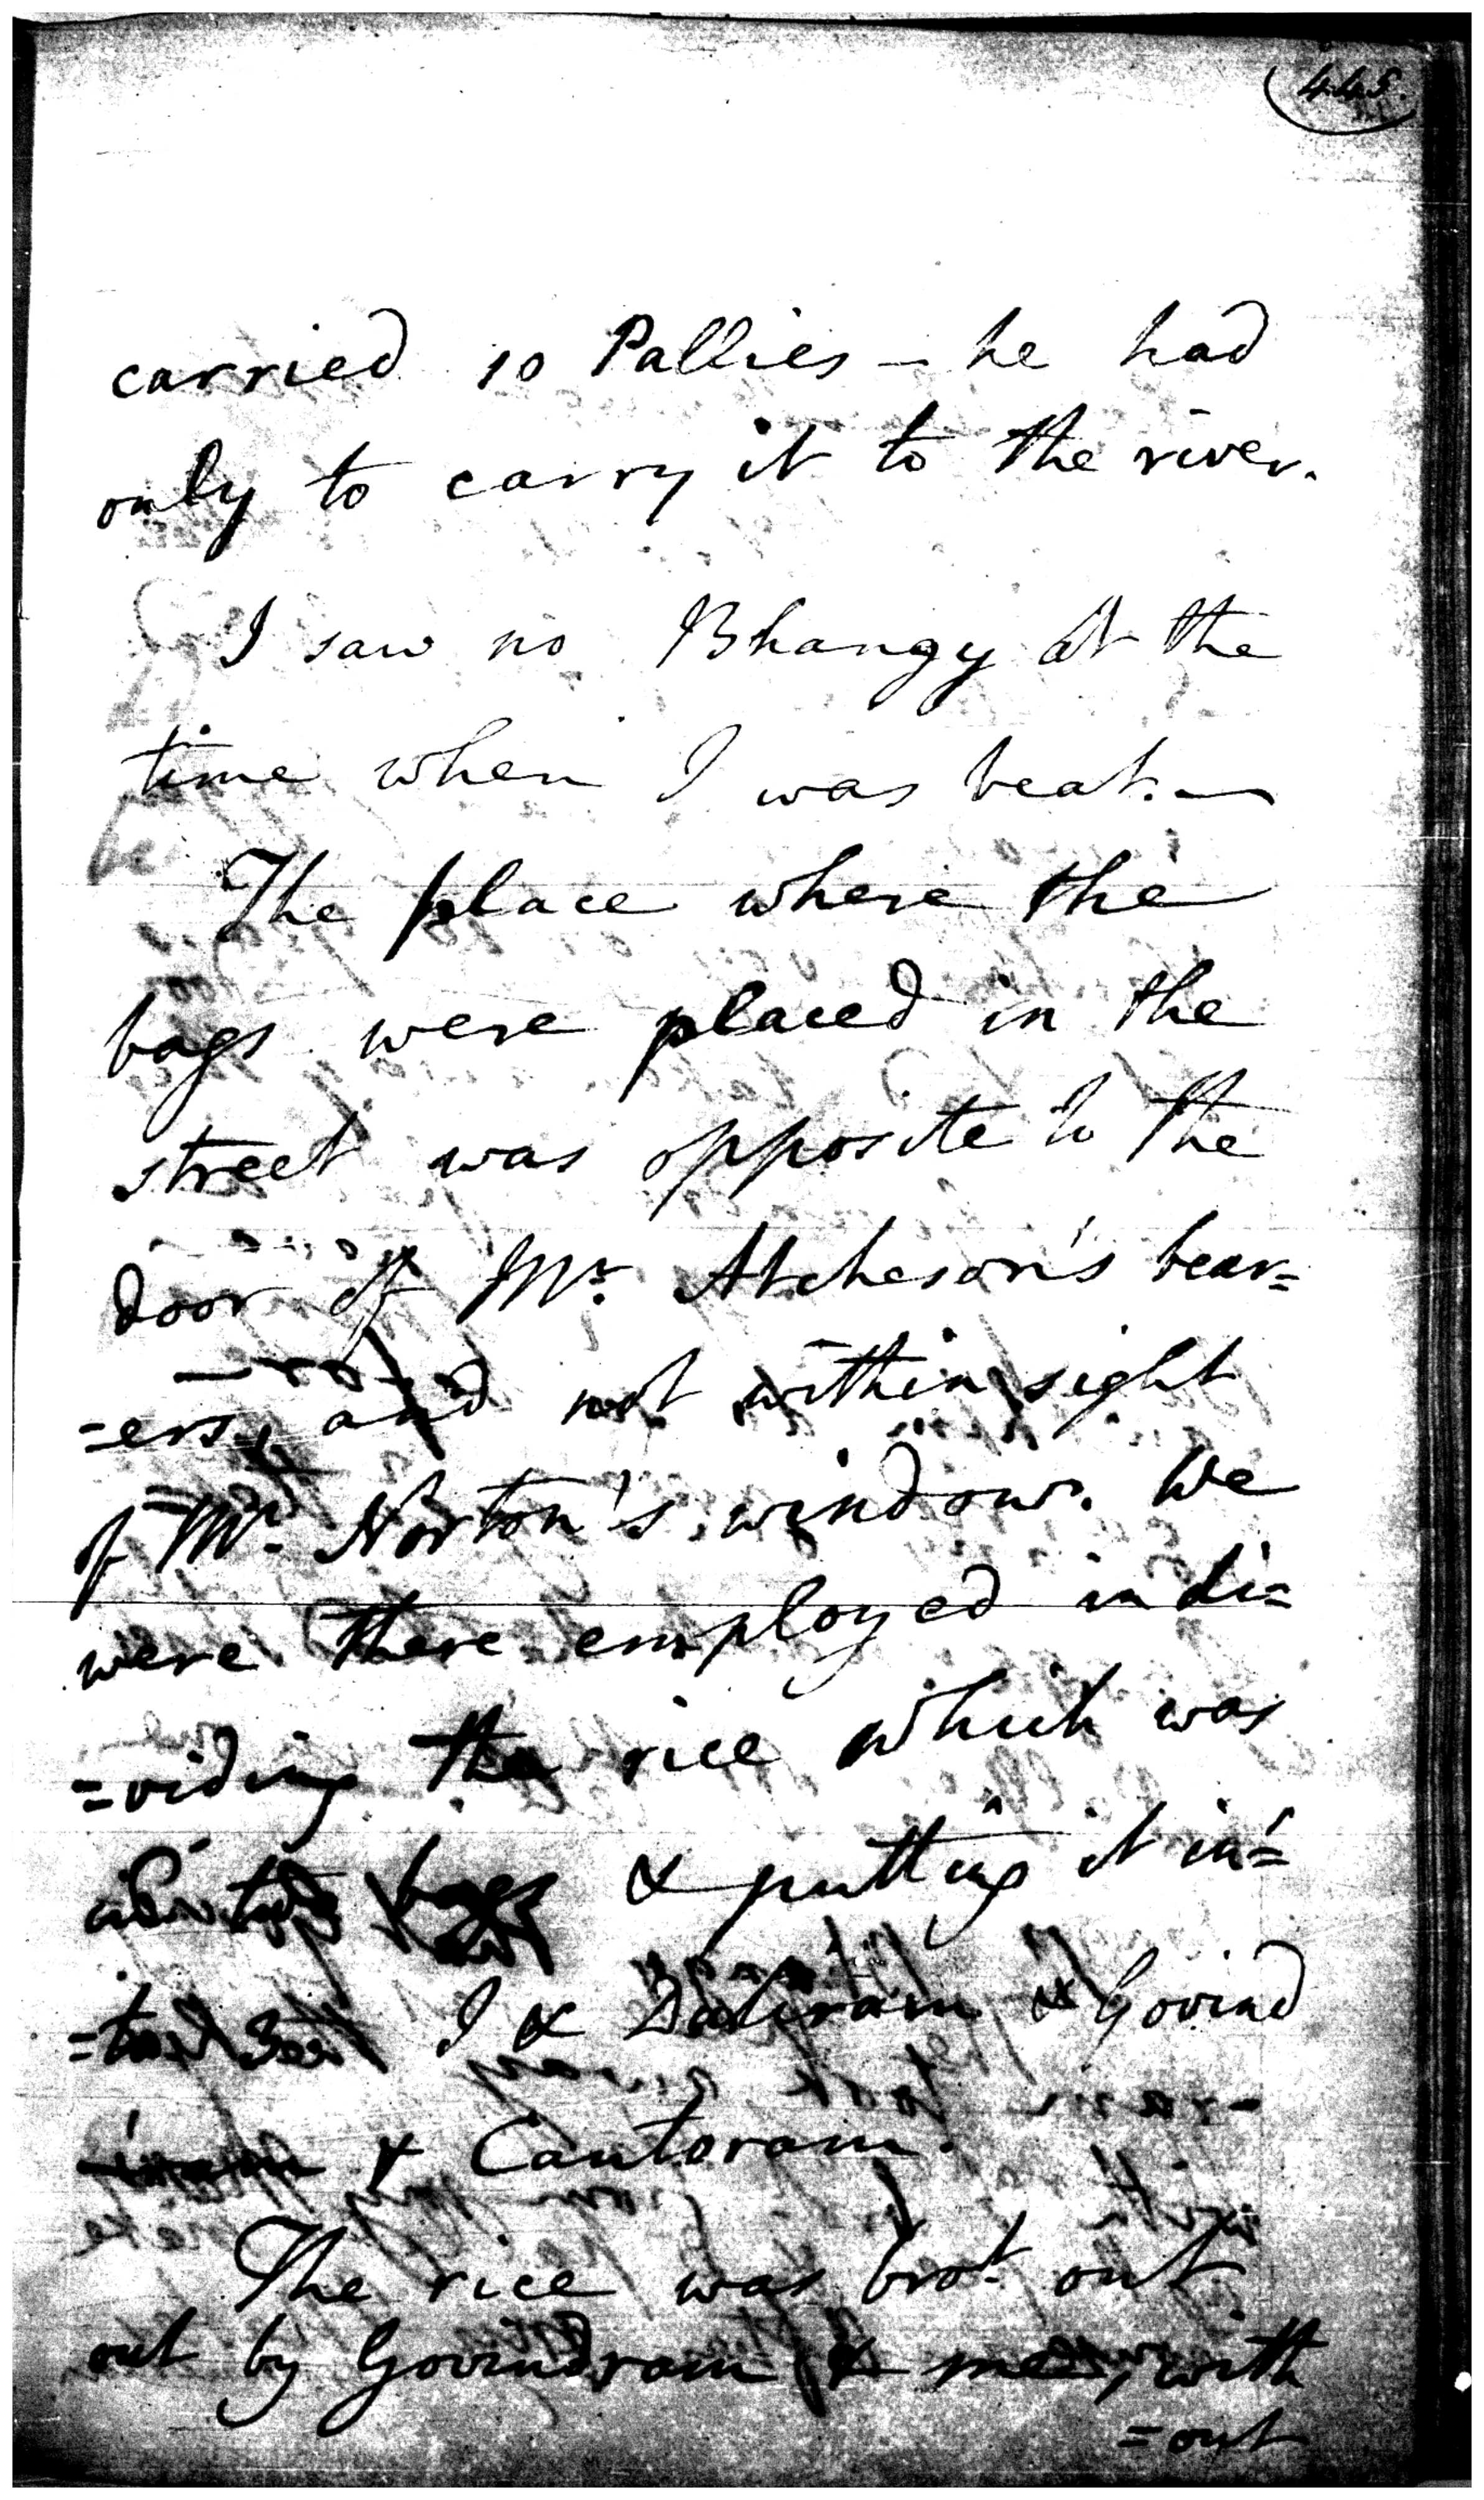 445.
carried 10 Pallies – he had
only to carry it to the river.
I saw no Bhangy at the
time when I was beat. –
The place where the
bags were placed in the
street was opposite to the
door of Mr. Atcheson's bear=
=ers, and not within sight
of Mr. Norton's window. We
were there employed in di=
=viding the rice which was
bags & putting it in=
I & Dataram & Govind
& Cantoram.
The rice was brot. out
out by Govindram & me, with
=out